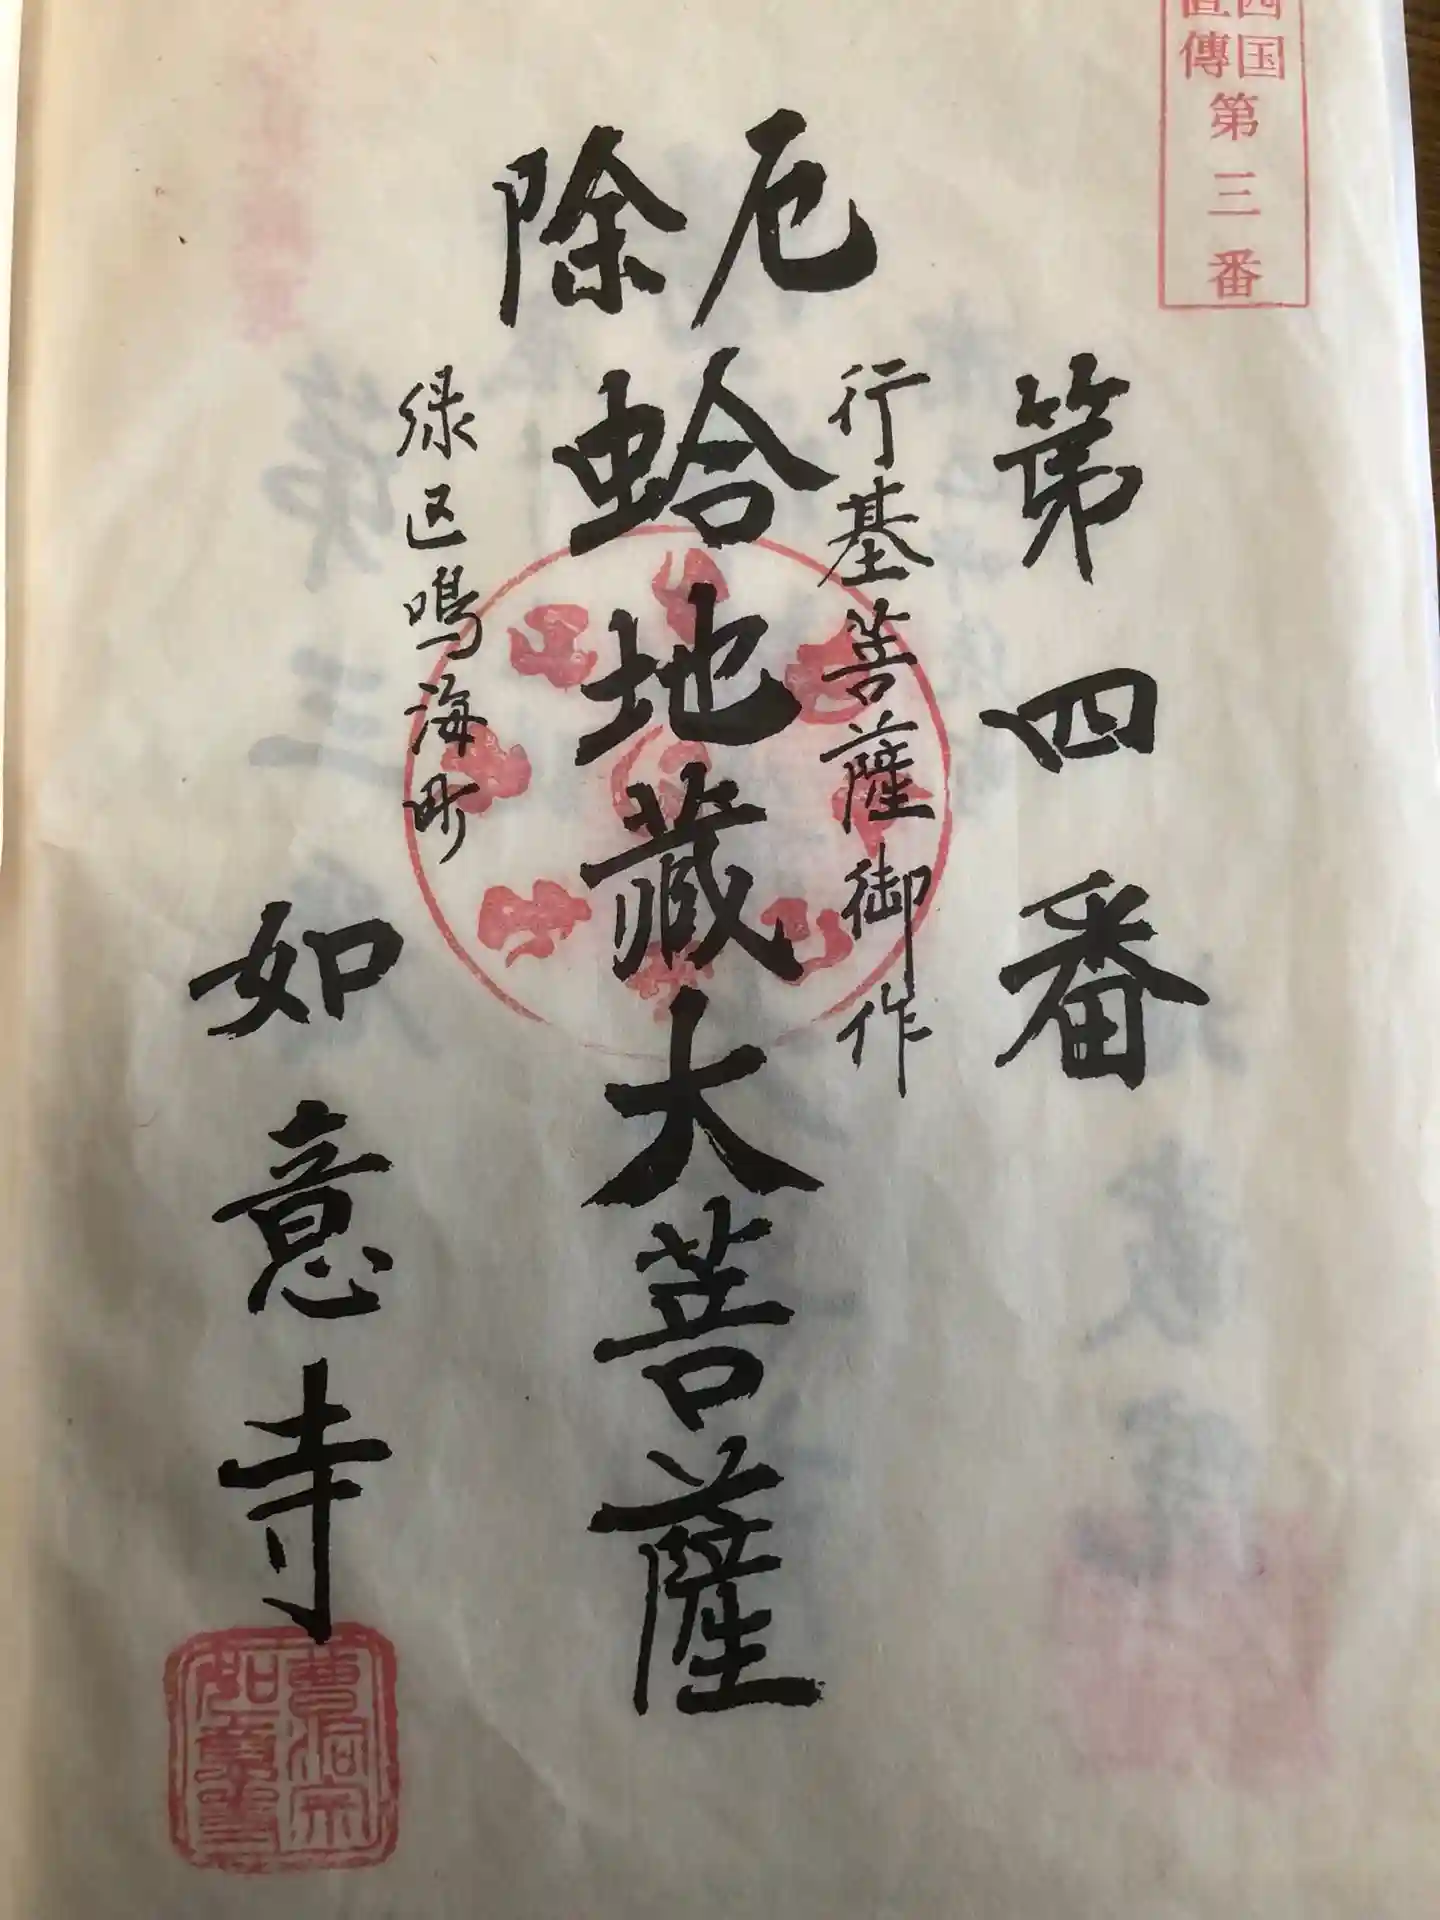 四国
直傳
第三番
第四番
行基菩薩御作
厄除
蛤地蔵大菩薩
緑区鳴海町
如意寺
曹洞宗
如意寺